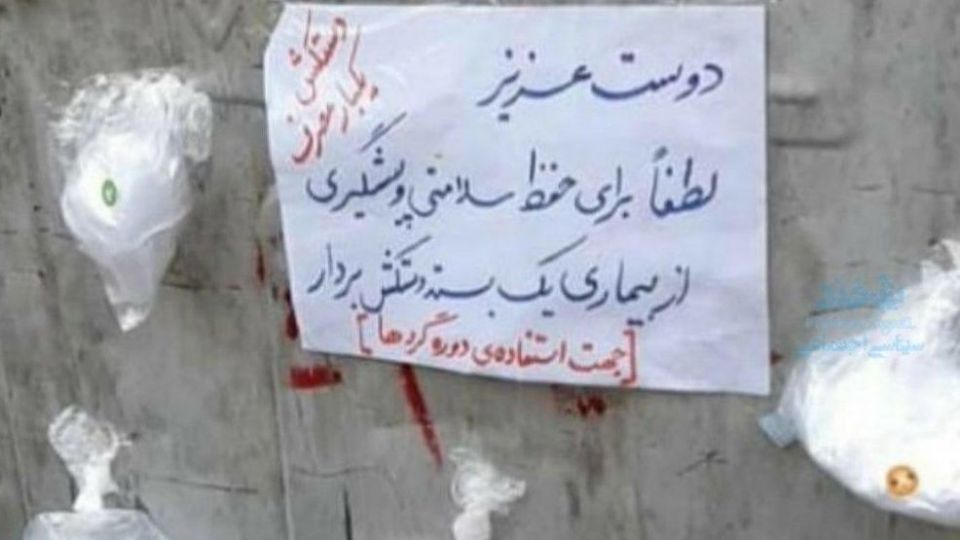 دوست عزیز
لطفاً برای حفظ سلامتی و پیشگیری
از بیماری یک بسته دستکش بردار
[جهت استفاده‌ی دوره گردها]
دستکش
یکبار مصرف
سیاسی اجتماعی